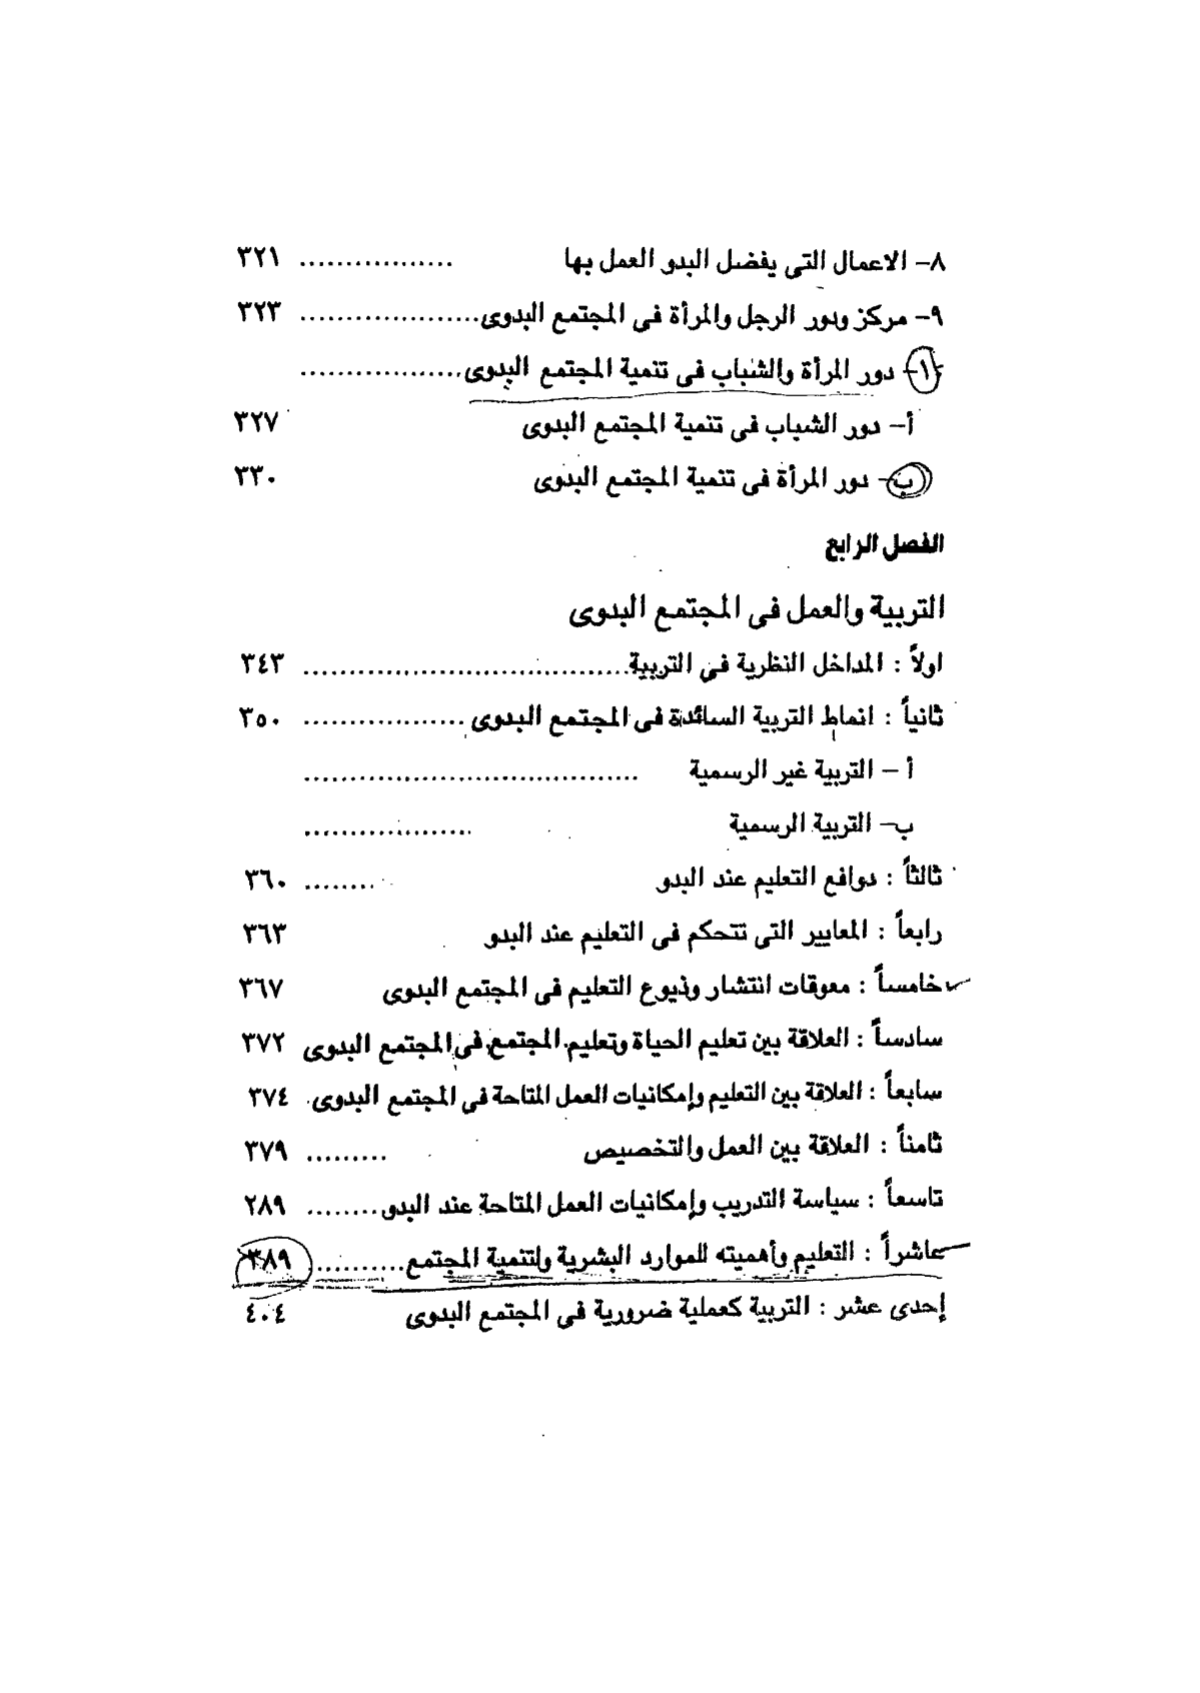 ٨– الاعمال التى يفضل البدو العمل بها ................. ٣٢١
٩– مركز ودور الرجل والمرأة فى المجتمع البدوى.................... ٣٢٣
١٠– دور المرأة والشباب فى تنمية المجتمع البدوى..................
أ– دور الشباب فى تنمية المجتمع البدوى ٣٢٧
ب– دور المرأة فى تنمية المجتمع البدوى ٣٣٠
الفصل الرابع
التربية والعمل فى المجتمع البدوى
اولاً : المداخل النظرية فى التربية.................................... ٣٤٣
ثانياً : انماط التربية السائدة فى المجتمع البدوى .................. ٣٥٠
أ – التربية غير الرسمية .....................................
ب– التربية الرسمية ...................
ثالثاً : دوافع التعليم عند البدو ........ ٣٦٠
رابعاً : المعايير التى تتحكم فى التعليم عند البدو ٣٦٣
خامساً : معوقات انتشار وذيوع التعليم فى المجتمع البدوى ٣٦٧
سادساً : العلاقة بين تعليم الحياة وتعليم المجتمع فى المجتمع البدوى ٣٧٢
سابعاً : العلاقة بين التعليم وإمكانيات العمل المتاحة فى المجتمع البدوى ٣٧٤
ثامناً : العلاقة بين العمل والتخصيص ......... ٣٧٩
تاسعاً : سياسة التدريب وإمكانيات العمل المتاحة عند البدو........ ٢٨٩
عاشراً : التعليم وأهميته للموارد البشرية ولتنمية المجتمع.......... ٣٨٩
إحدى عشر : التربية كعملية ضرورية فى المجتمع البدوى ٤٠٤